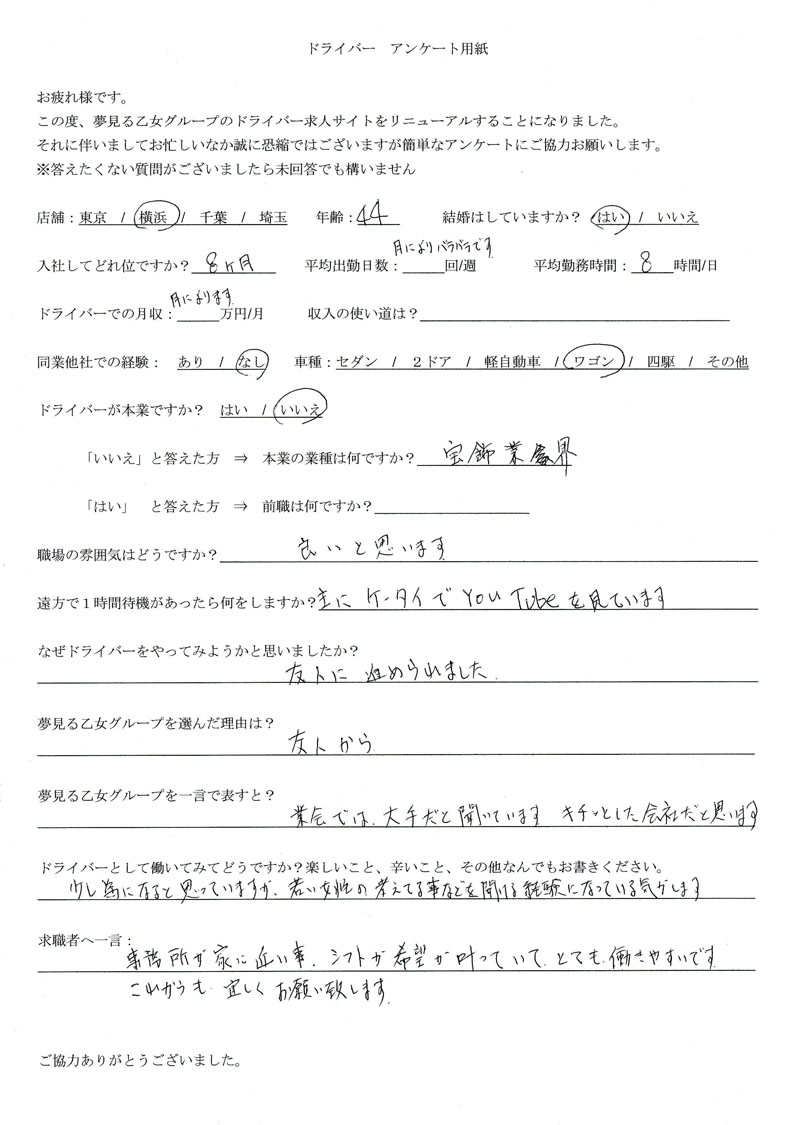 ドライバー　アンケート用紙
お疲れ様です。
この度、夢見る乙女グループのドライバー求人サイトをリニューアルすることになりました。
それに伴いましてお忙しいなか誠に恐縮ではございますが簡単なアンケートにご協力お願いします。
※答えたくない質問がございましたら未回答でも構いません
店舗：東京　/　横浜　/　千葉　/　埼玉　　年齢：44　　結婚はしていますか？　はい　/　いいえ
月によりバラバラです
入社してどれ位ですか？ 8ヶ月　　平均出勤日数：　　回/週　　平均勤務時間： 8 時間/日
月によります
ドライバーでの月収：　　万円/月　　収入の使い道は？
同業他社での経験：　あり　/　なし　　車種：セダン　/　２ドア　/　軽自動車　/　ワゴン　/　四駆　/　その他
ドライバーが本業ですか？　はい　/　いいえ
「いいえ」と答えた方　⇒　本業の業種は何ですか？ 宝飾業界
「はい」　と答えた方　⇒　前職は何ですか？
職場の雰囲気はどうですか？ 良いと思います
遠方で１時間待機があったら何をしますか？主にケータイでYouTubeを見ています
なぜドライバーをやってみようかと思いましたか？
友人に進められました
夢見る乙女グループを選んだ理由は？
友人から
夢見る乙女グループを一言で表すと？
業会では、大手だと聞いています　キチッとした会社だと思います
ドライバーとして働いてみてどうですか？楽しいこと、辛いこと、その他なんでもお書きください。
少し為になると思っていますが、若い女性の考えてる事などを聞ける経験になっている気がします
求職者へ一言：
事務所が家に近い事、シフトが希望が叶っていて、とても働きやすいです
これからも宜しくお願い致します
ご協力ありがとうございました。